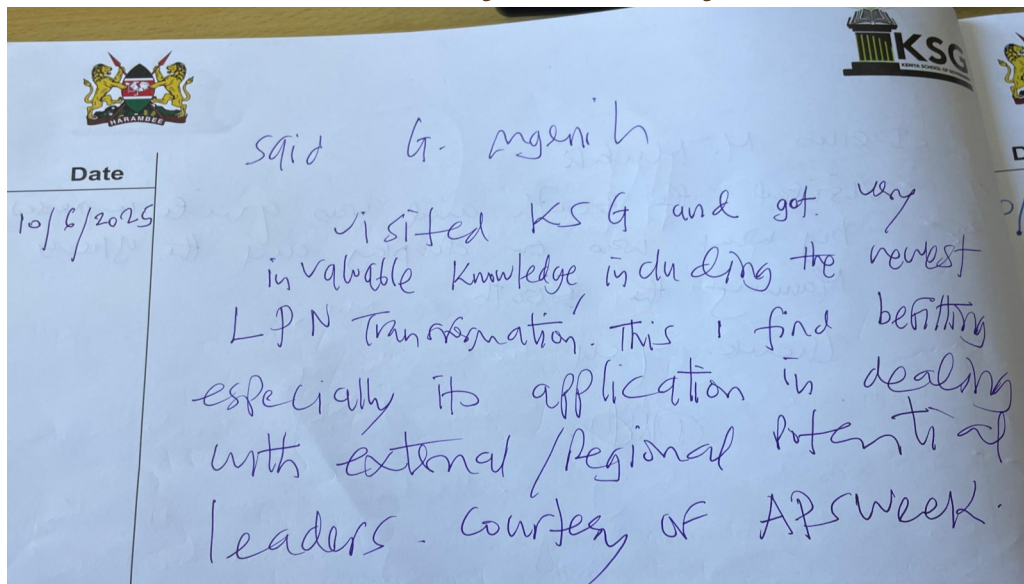 HARAMBEE
KSG
KENYA SCHOOL OF
Date
10/6/2025
Said G. Mgenih
visited KSG and got very
invaluable knowledge, including the newest
LPN Transformation. This I find befitting
especially its application in dealing
with external /Regional Potential
leaders. Courtesy of APSWeek.